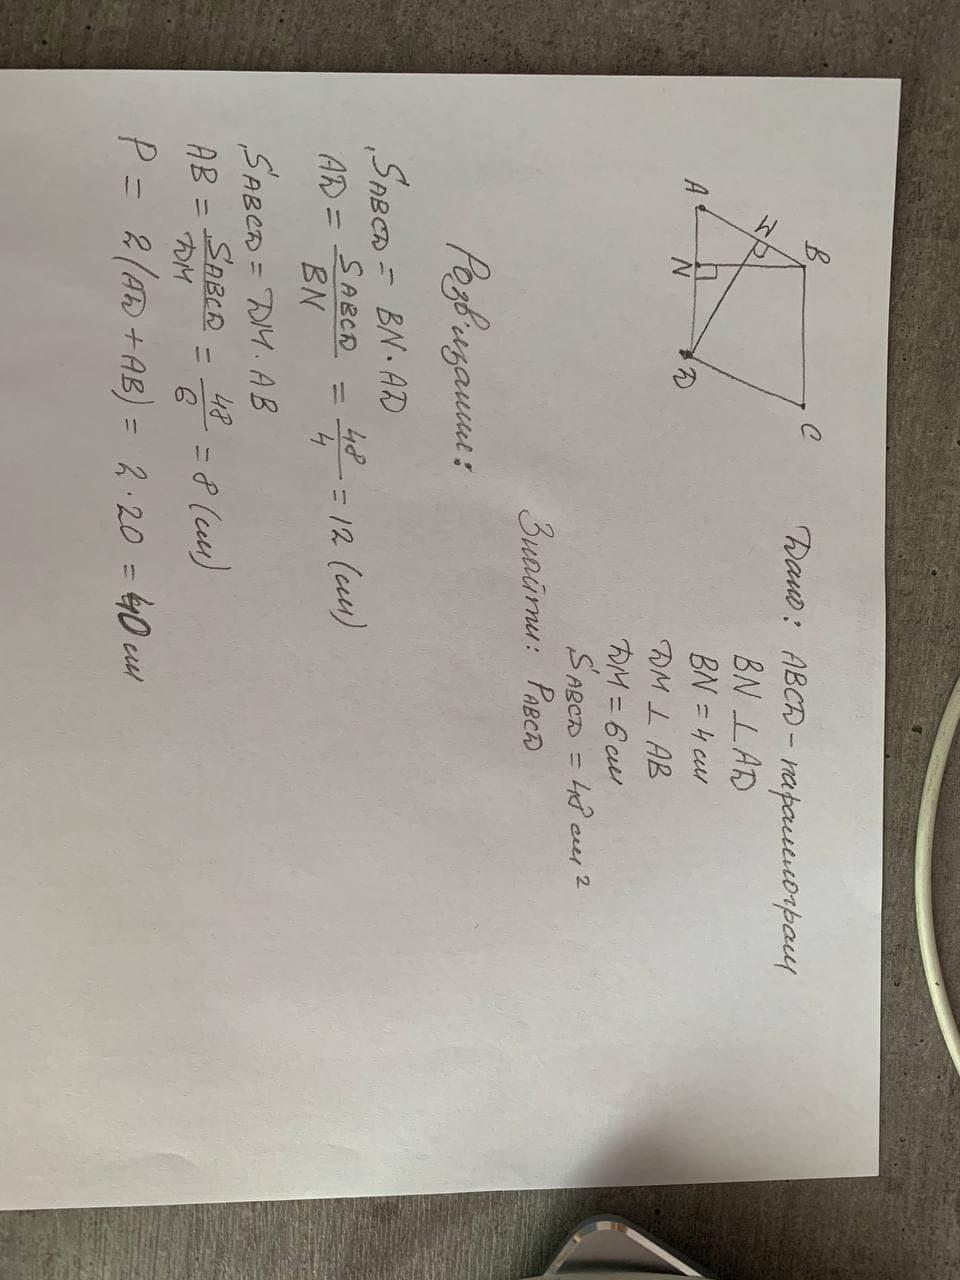 B
C
M
A
N
D
Дано: ABCD - паралелограм
BN ⊥ AD
BN = 4 см
DM ⊥ AB
DM = 6 см
SABCD = 48 см²
Знайти: PABCD
Розв'язання:
SABCD = BN · AD
AD = SABCD / BN = 48 / 4 = 12 (см)
SABCD = DM · AB
AB = SABCD / DM = 48 / 6 = 8 (см)
P = 2(AD + AB) = 2 · 20 = 40 см